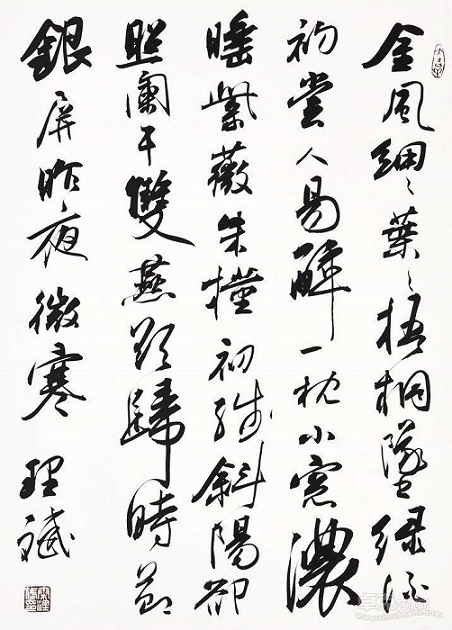 金風細〻葉〻梧桐墜绿酒
初嘗人易醉一枕小窗濃
睡紫薇朱槿初殘斜陽卻
照闌干雙燕欲歸時節
銀屏昨夜微寒
理斌